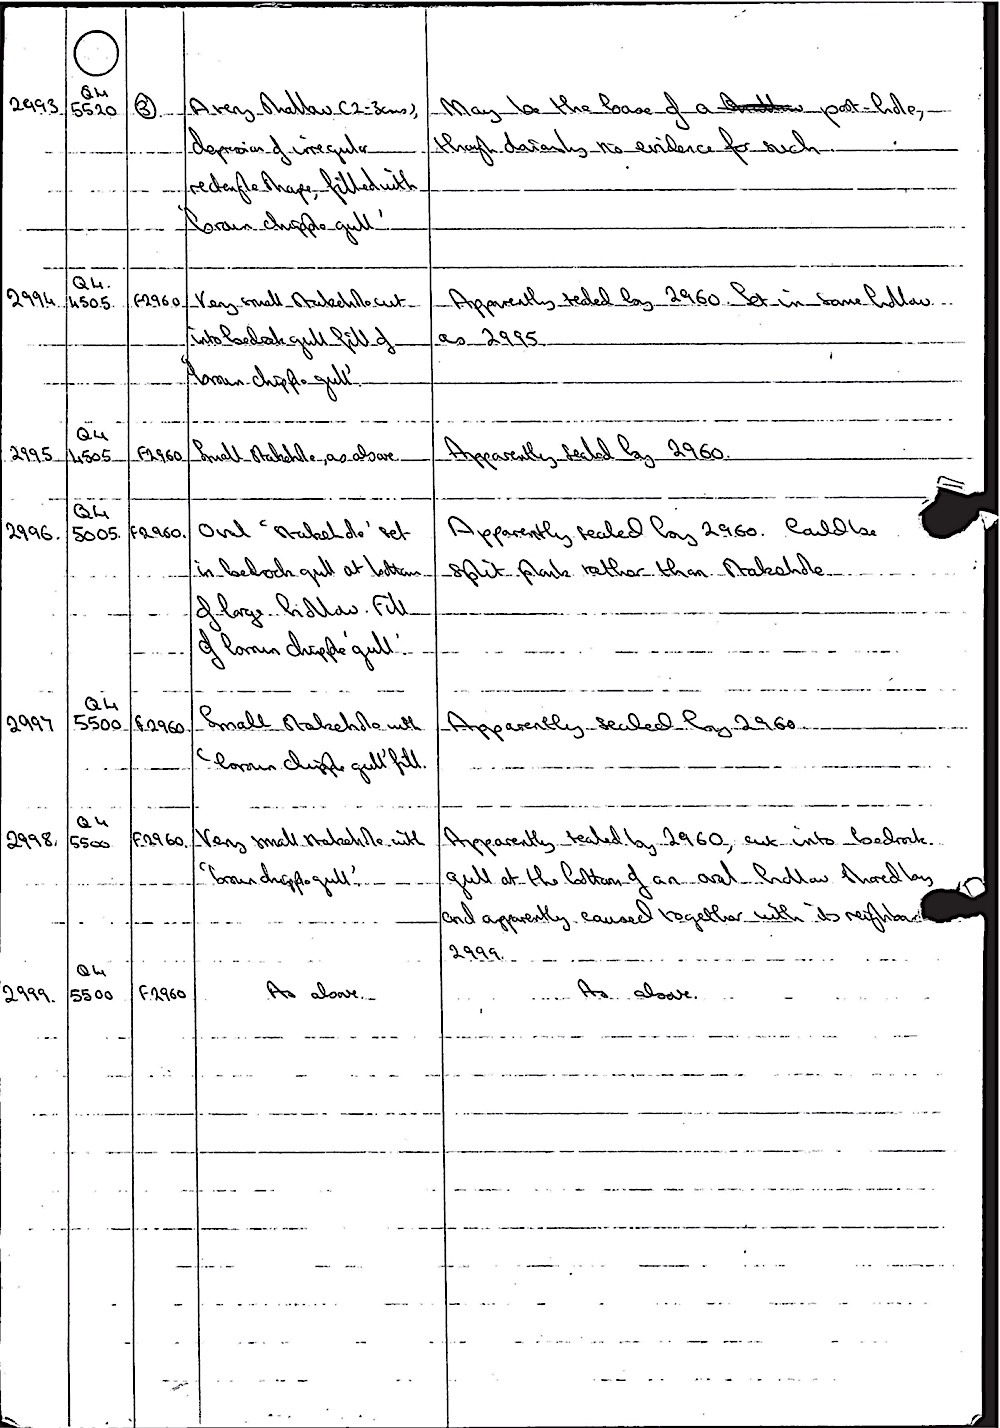 Q4
2993 5520 ③ A very shallow (2-3cms), May be the base of a post-hole,
depression of irregular though no evidence for such
rectangle shape, filled with
'brown chipple gull'.
Q4.
2994 4505 F2960 Very small stakehole cut Apparently sealed by 2960. Set in same hollow
into bedrock gull fill of as 2995
'brown chipple gull'.
Q4
2995 4505 F2960 Small stakehole, as above Apparently sealed by 2960.
Q4
2996. 5005. F2960. Oval 'stakehole' set Apparently sealed by 2960. Could be
in bedrock gull at bottom split plank rather than stakehole
of large hollow. Fill
of brown chipple 'gull'.
Q4
2997 5500 F2960 Small stakehole with Apparently sealed by 2960
'brown chipple gull' fill.
Q4
2998. 5500 F.2960. Very small stakehole with Apparently sealed by 2960, cut into bedrock
'brown chipple gull'. gull at the bottom of an oval hollow shared by
and apparently caused together with its neighbour
2999.
Q4
2999. 5500 F.2960 As above. As above.